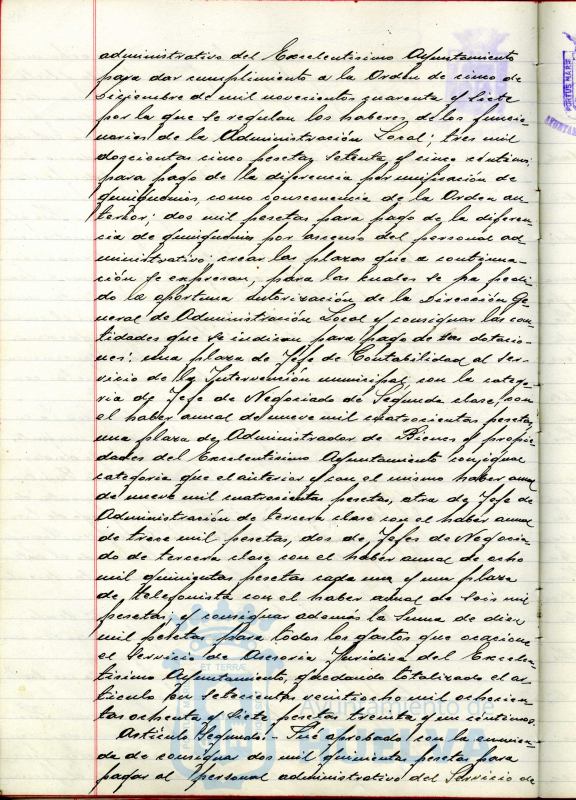 administrativo del Excelentisimo Ayuntamiento
para dar cumplimiento a la Orden de cinco de
Diciembre de mil novecientos cuarenta y siete
por la que se regulan los haberes de los funcio-
narios de la Administración Local; tres mil
doscientas cinco pesetas setenta y cinco céntimos
para pago de la diferencia por unificación de
quinquenios, como consecuencia de la Orden an-
terior; dos mil pesetas para pago de la diferen-
cia de quinquenios por ascenso del personal ad-
ministrativo; crear las plazas que a continua-
ción se expresan, para las cuales se ha pedi-
do la oportuna autorización de la Dirección Ge-
neral de Administración Local y consignar las can-
tidades que se indican para pago de las dotacio-
nes: una plaza de Jefe de Contabilidad al ser-
vicio de la Intervención municipal, con la catego-
ria de Jefe de Negociado de Segunda clase, con
el haber anual de nueve mil cuatrocientas pesetas,
una plaza de Administrador de Bienes y propie-
dades del Excelentisimo Ayuntamiento con igual
categoria que el anterior y con el mismo haber anual
de nueve mil cuatrocientas pesetas, otra de Jefe de
Administración de tercera clase con el haber anual
de trece mil pesetas, dos de Jefes de Negocia-
do de tercera clase con el haber anual de ocho
mil quinientas pesetas cada una y una plaza
de Telefonista con el haber anual de seis mil
pesetas; y consignar además la suma de diez
mil pesetas para todos los gastos que ocasione
el Servicio de Asesoria Juridica del Excelen-
tisimo Ayuntamiento, quedando totalizado el ar-
ticulo en setecientas veintiocho mil ochocien-
tas ochenta y siete pesetas treinta y un céntimos.
Artículo Segundo.- Fué aprobado con la enmien-
da de consignar dos mil quinientas pesetas para
pagar al personal administrativo del Servicio de
Ayuntamiento de
HUELVA
PORTUS MARIS
ET TERRAE